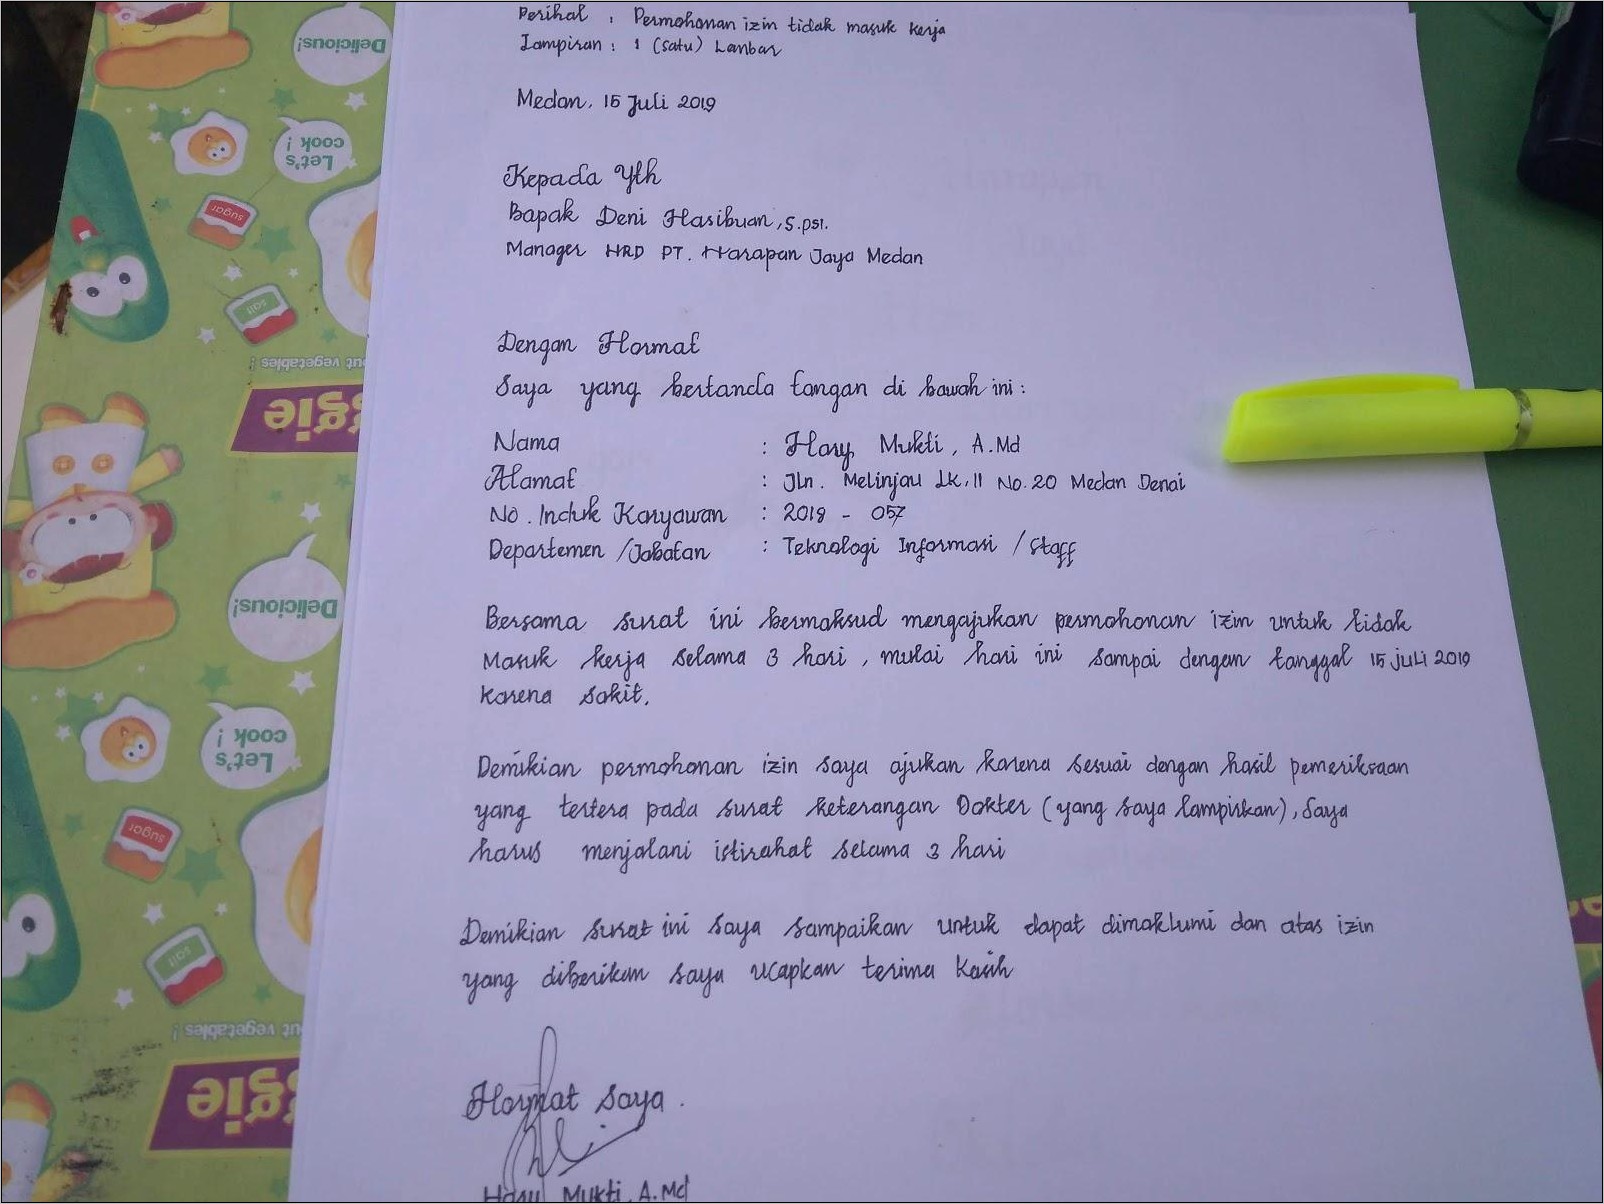 Perihal : Permohonan izin tidak masuk kerja
Lampiran : 1 (satu) Lanbar
Medan, 15 Juli 2019
Kepada Yth
Bapak Deni Hasibuan, S.psi.
Manager HRD PT. Harapan Jaya Medan
Dengan Hormat
Saya yang bertanda tangan di bawah ini :
Nama : Hary Mukti, A.Md
Alamat : Jln. Melinjau Lk.II No.20 Medan Denai
No. Induk Karyawan : 2019 - 057
Departemen /Jabatan : Teknologi Informasi / Staff
Bersama surat ini bermaksud mengajukan permohonan izin untuk tidak
Masuk kerja selama 3 hari, mulai hari ini sampai dengan tanggal 15 juli 2019
karena sakit.
Demikian permohonan izin saya ajukan karena sesuai dengan hasil pemeriksaan
yang tertera pada surat keterangan Dokter (yang saya lampirkan), Saya
harus menjalani istirahat selama 3 hari
Demikian surat ini saya sampaikan untuk dapat dimaklumi dan atas izin
yang diberikan saya ucapkan terima kasih
Hormat saya.
Hary Mukti, A.Md
Delicious!
Let's
cook !
sugar
salt
out vegetables !
ggie
Delicious!
Let's
cook !
sugar
salt
out vegetables !
ggie